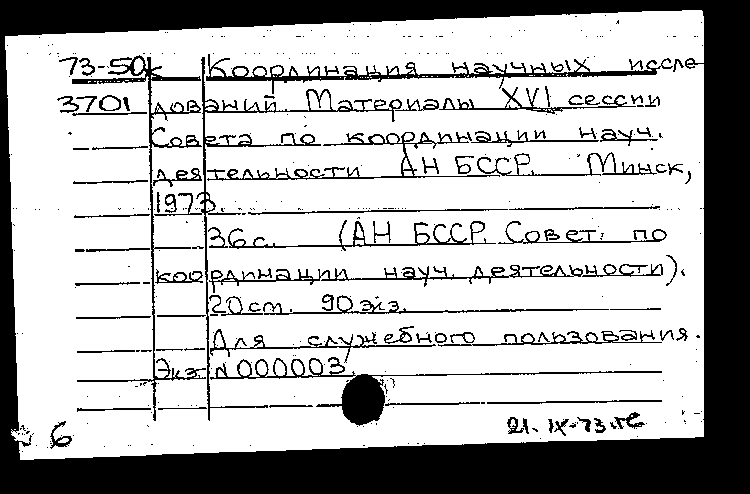 73-50к Координация научных иссле
3701 дований. Материалы XVI сессии
Совета по координации науч.
деятельности АН БССР. Минск,
1973.
36 с. (АН БССР. Совет по
координации науч. деятельности).
20 cm. 90 экз.
Для служебного пользования.
Экз. N 000003.
6 21. IX-73.